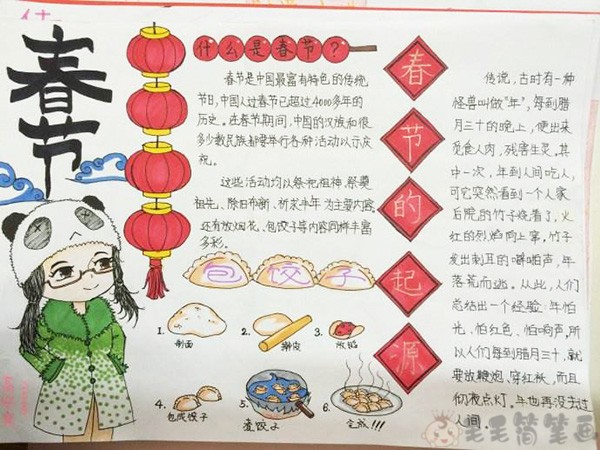 春节
什么是春节？
春节是中国最富有特色的传统
节日,中国人过春节已超过4000多年的
历史。在春节期间,中国的汉族和很
多少数民族都要举行各种活动以示庆
祝。
这些活动均以祭祀祖神、祭奠
祖先、除旧布新、祈求丰年为主要内容,
还有放烟花、包饺子等内容同样丰富
多彩。
包饺子
1.
制面
2.
擀皮
3.
放馅
4.
包成饺子
5.
煮饺子
6.
完成!!!
春节的起源
传说，古时有一种
怪兽叫做"年"，每到腊
月三十的晚上，便出来
觅食人肉，残害生灵。其
中一次，年到人间吃人,
可它突然看到一个人家
后院的竹子烧着了，火
红的烈焰向上窜。竹子
发出刺耳的噼啪声，年
落荒而逃。从此，人们
总结出一个经验:年怕
光、怕红色、怕响声,所
以人们每到腊月三十，就
要放鞭炮、穿红袄，而且
彻夜点灯。年也再没去过
人间。
毛毛简笔画